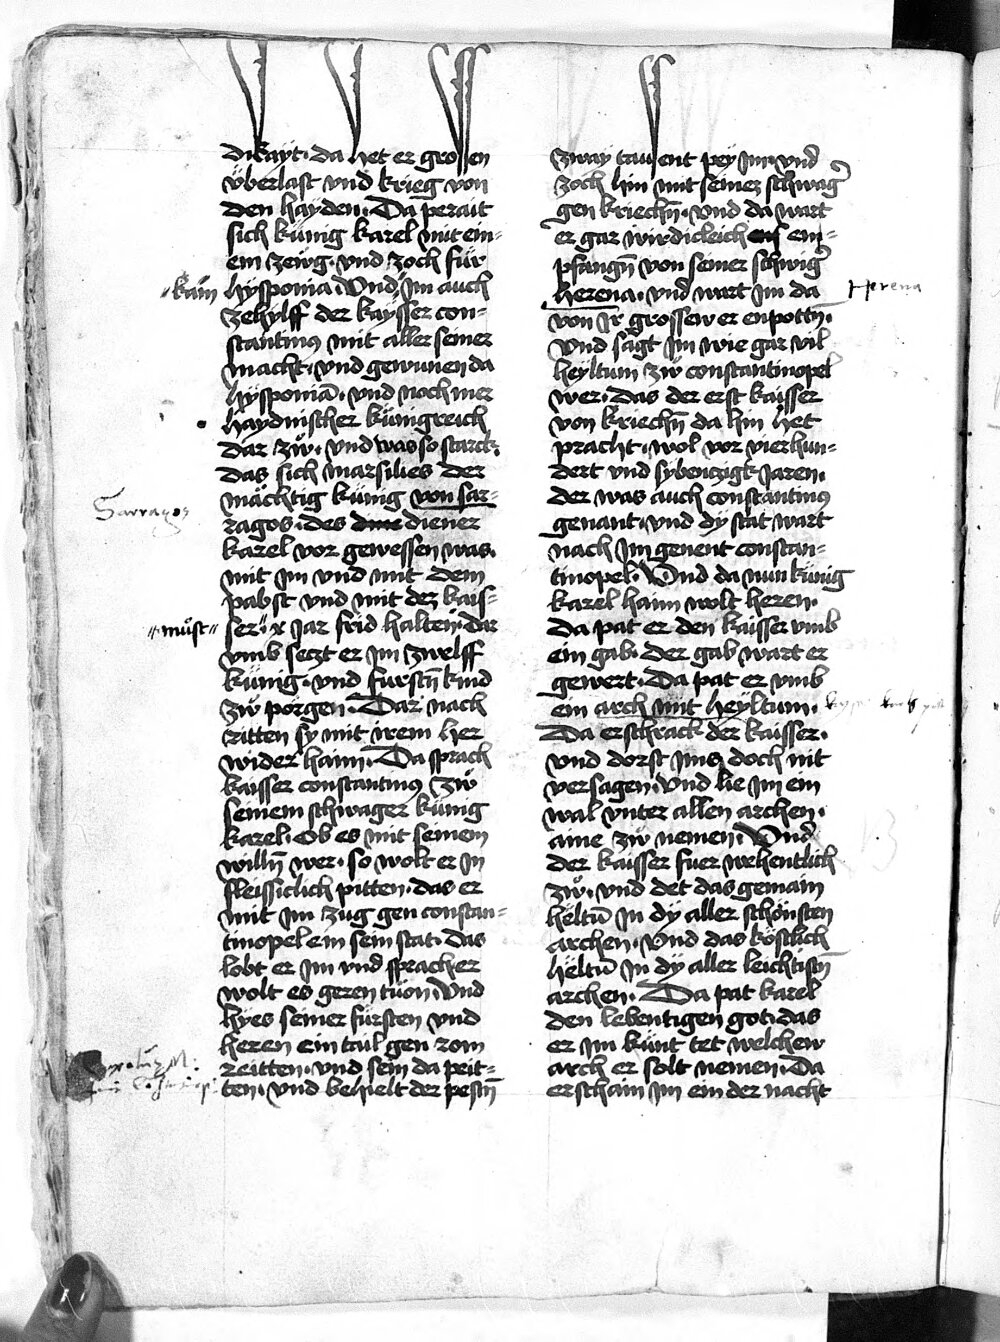 dikayt. da het er grossen
vberlast vnd krieg von
den hayden. Da perait
sich künig karel mit ein=
em zewg. vnd zoch für
hÿsponia. Vnd Im auch
"kam
zehylff der kaÿsser con=
stantinus mit aller seiner
macht. vnd gewunen da
hÿsponiā. vnd noch mer
haydnischer künigreich
dar zw̌. vnd was so starck.
das sich marsilies der
mächtig künig von sar=
Sarragos
ragos. des diener
karel vor gewessen was.
mit Im vnd mit dem
pabst vnd mit dez kais=
ser. x Jar frid halten. dar
"müst"
vmb seczt er Im zwelff
künig. vnd fürstn̄ kind
zw̌ porgen. Dar nach
ritten sy mit irem her
wider haim. Da sprach
kaisser constantinus zw̌
seinem schwager künig
karel. Ob es mit seinem
willn̄ wer. so wolt er In
fleissiclich pitten. das er
mit Im zug gen constan=
tinopel ein sein stat. das
lobt er Im vnd sprach er
wolt es geren tüon. Vnd
hÿes seiner fürsten vnd
heren ein tail gen rom
reitten. vnd sein da peit=
ten. vnd behielt der pestn̄
zway tausent peÿ Im. vnd
zoch hin mit seinez schwag̕
gen kriechn̄. vnd da wart
er gar wirdicleich em=
pfangn̄ von seiner schwig̕
herena. vnd wart Im da
Herena
von Ir grossew er enpottn̄.
Vnd sagt Im wie gar vil
heÿltum zw̌ constantinopel
wer. Das der erst kaisser
von kriechn̄ da hin het
pracht. wol vor vierhun=
dert vnd sÿbenczigk Jaren.
der was auch constantinus
genant. vnd dÿ stat wart
nach Im genent constan=
tinopel. Vnd da nun künig
karel haim wolt keren.
da pat er den kaisser vmb
ein gab. der gab wart er
gewert. Da pat er vmb
ein arch mit heÿltum.
Da erschrack der kaisser.
vnd dorst Ims doch nit
versagen. Vnd lie Im ein
wal vnter allen archen.
aine zw̌ nemen. Vnd
der kaisser fuer wehentlich
zw̌. vnd det das gemain
heltū In dÿ aller schönsten
archen. Vnd das köstlich
heltū In dÿ aller leichtistn̄
archen. Da pat karel
den lebentigen got. das
er Im künt tet welchew
arch er solt nemen. Da
erschain Im ein der nacht